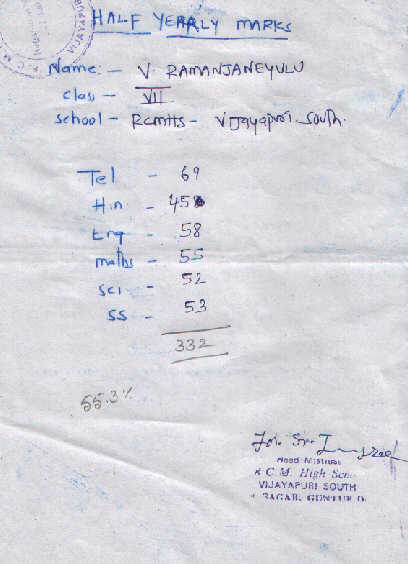 HALF YEARLY MARKS
Name:- V. RAMANJANEYULU
class - VII
school - RCMHS - Vijayapuri South.
Tel - 69
Hin - 45
Eng - 58
maths - 55
sci - 52
SS - 53
332
55.3%
Head Mistress
R.C.M. High
VIJAYAPURI SOUTH
SAGAR, GUNTUR D